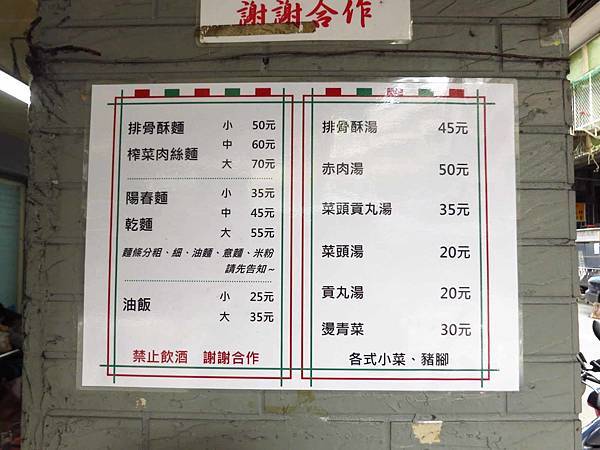 謝謝合作
排骨酥麵 小 50元
榨菜肉絲麵 中 60元
大 70元
陽春麵 小 35元
中 45元
乾麵 大 55元
麵條分粗、細、油麵、意麵、米粉
請先告知~
油飯 小 25元
大 35元
禁止飲酒 謝謝合作
排骨酥湯 45元
赤肉湯 50元
菜頭貢丸湯 35元
菜頭湯 20元
貢丸湯 20元
燙青菜 30元
各式小菜、豬腳